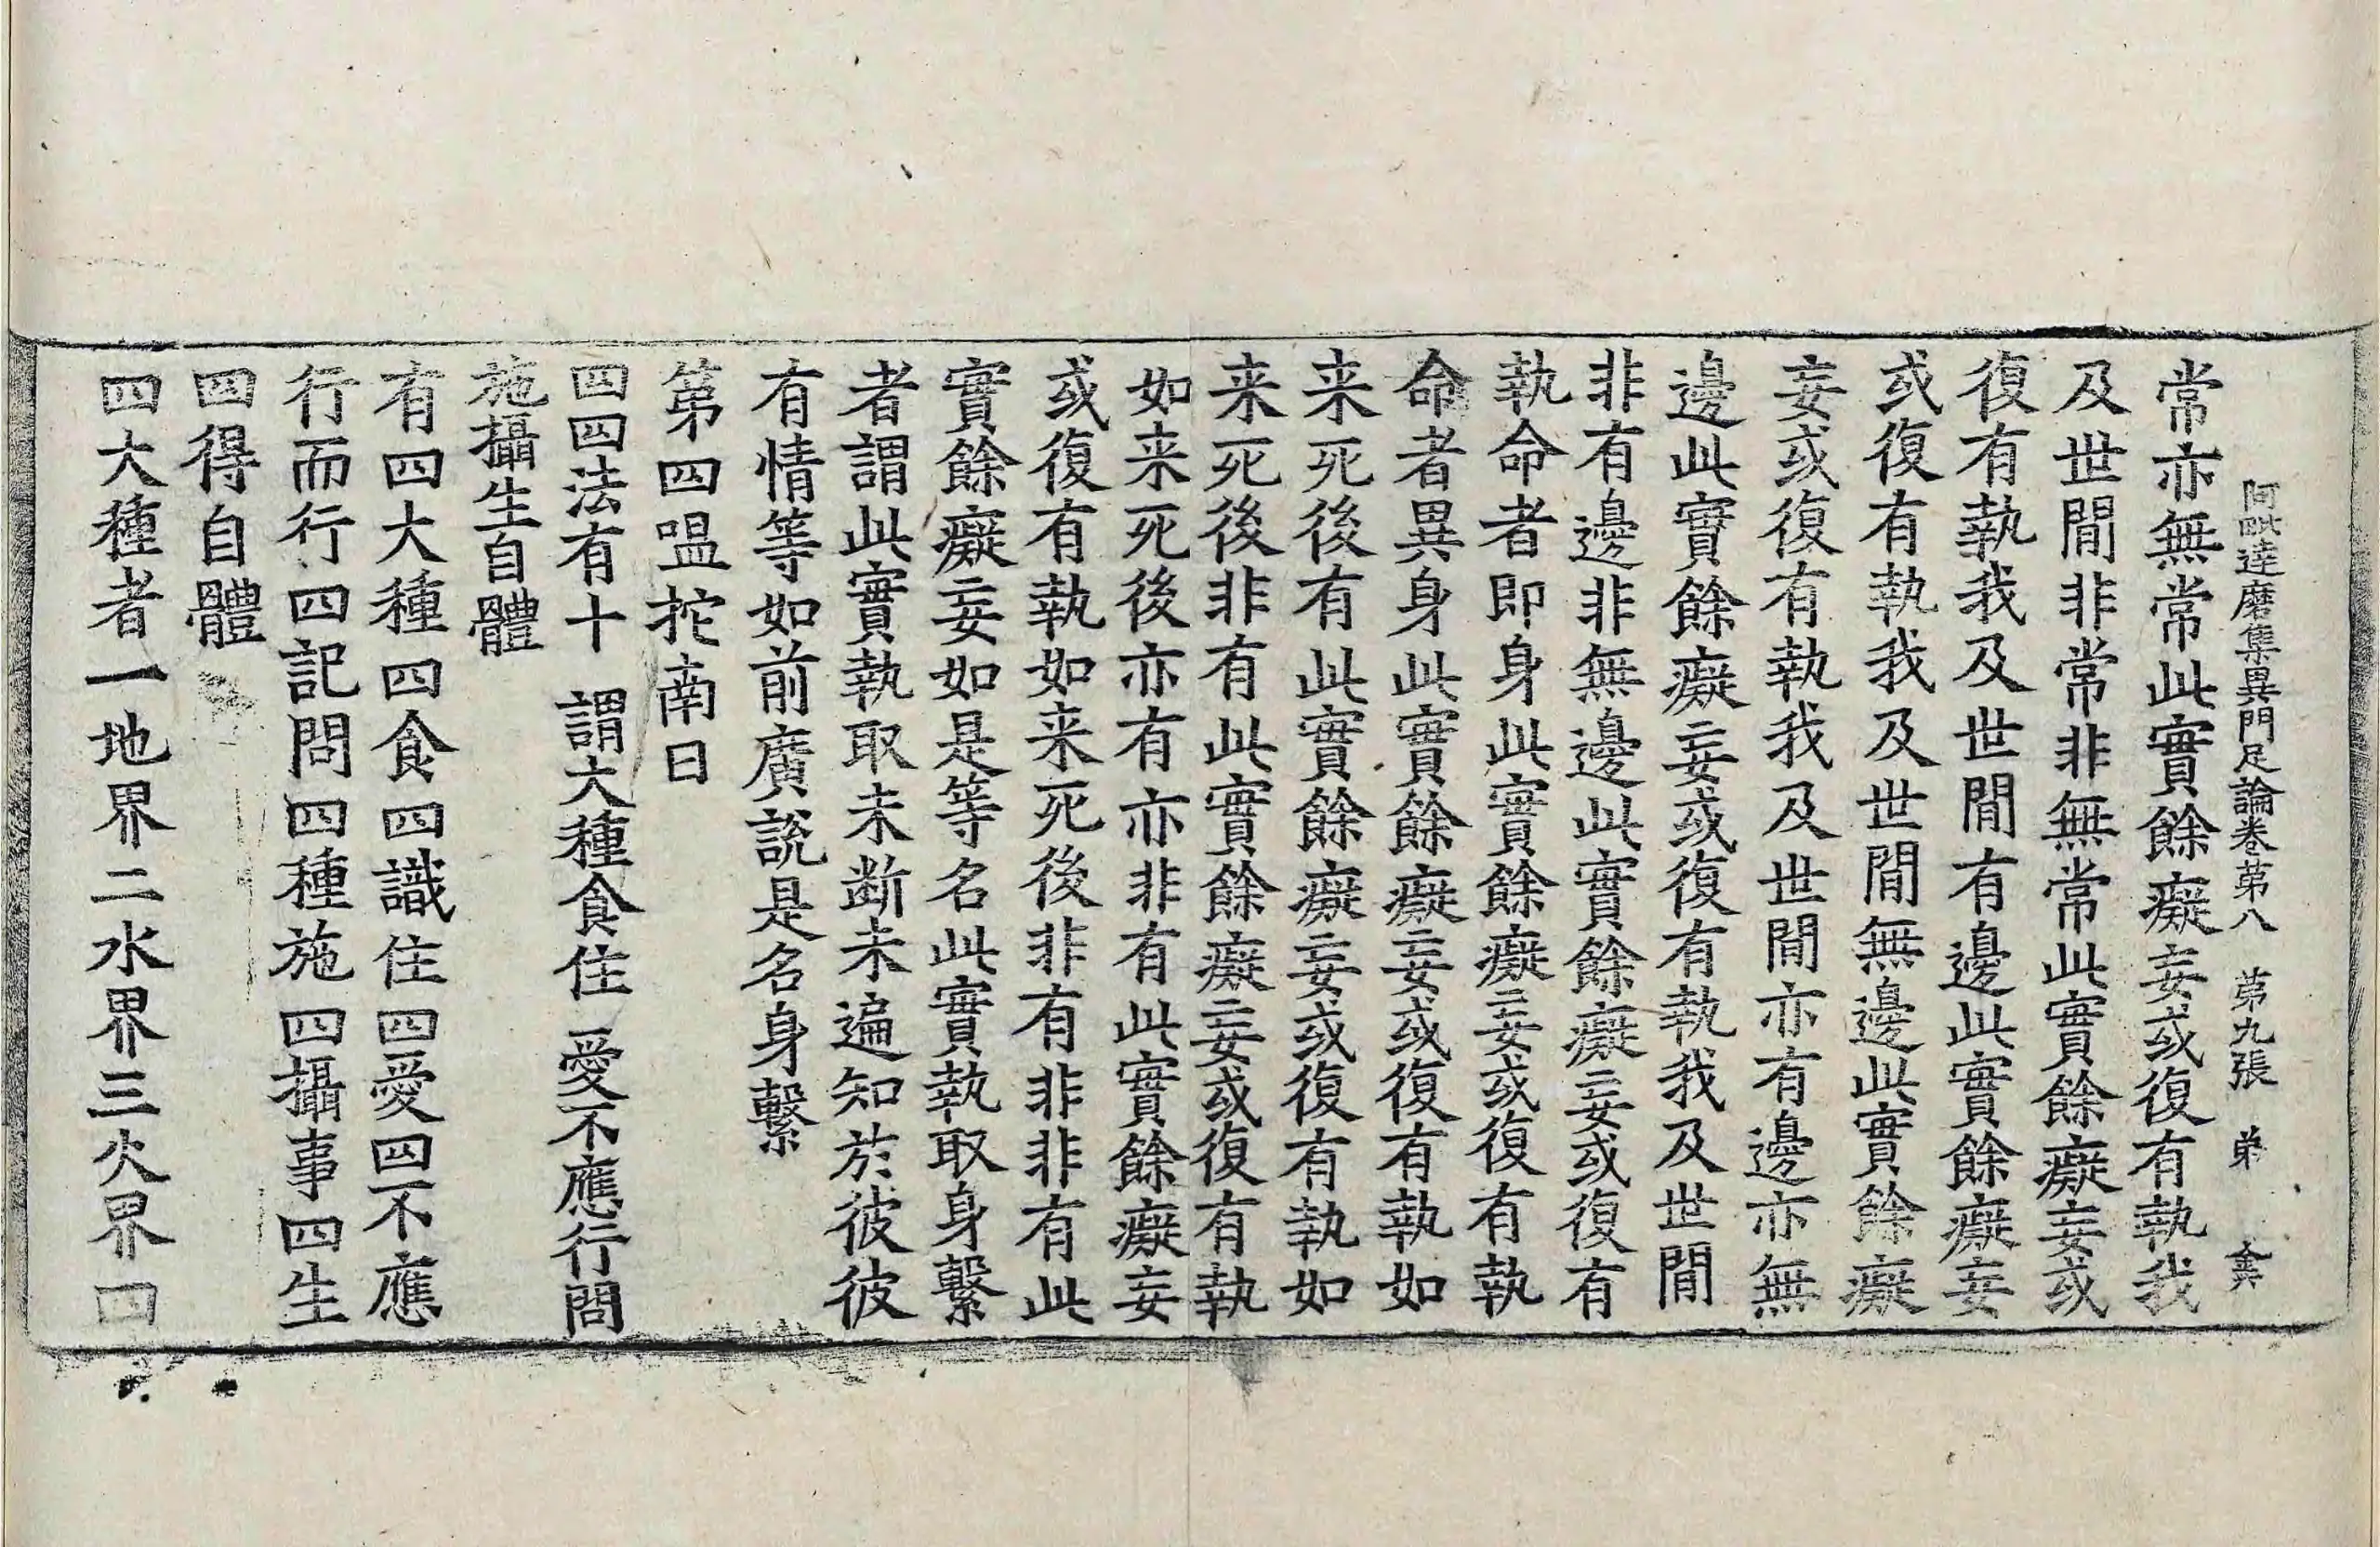 阿毗達磨集異門足論卷第八　第九張　弟
常亦無常此實餘癡妄或復有執我
及世閒非常非無常此實餘癡妄或
復有執我及世閒有邊此實餘癡妄
或復有執我及世閒無邊此實餘癡
妄或復有執我及世閒亦有邊亦無
邊此實餘癡妄或復有執我及世閒
非有邊非無邊此實餘癡妄或復有
執命者即身此實餘癡妄或復有執
命者異身此實餘癡妄或復有執如
来死後有此實餘癡妄或復有執如
来死後非有此實餘癡妄或復有執
如来死後亦有亦非有此實餘癡妄
或復有執如来死後非有非非有此
實餘癡妄如是等名此實執取身繫
者謂此實執取未断未遍知於彼彼
有情等如前廣說是名身繫
第四嗢拕南曰
四四法有十　謂大種食住　愛不應行問
施攝生自體
有四大種四食四識住四愛四不應
行而行四記問四種施四攝事四生
四得自體
四大種者一地界二水界三火界四